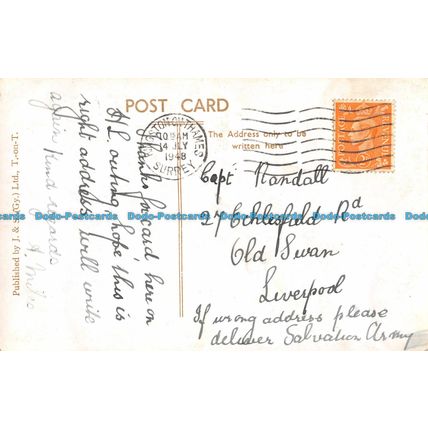 POST CARD
The Address only to be
written here
WALTON-ON-THAMES
10 AM
14 JLY
1948
SURREY
Thanks for card here on
H.L. outing, hope this is
right address, will write
again Kind regards
Capt Randall
27 Echlesfield Rd
Old Swan
Liverpool
If wrong address please
deliver Salvation Army
Published by J. & S. (Gy.) Ltd., T.-on-T.
Dodo-Postcards Dodo-Postcards Dodo-Postcards Dodo-Postcards Dodo-Postcards